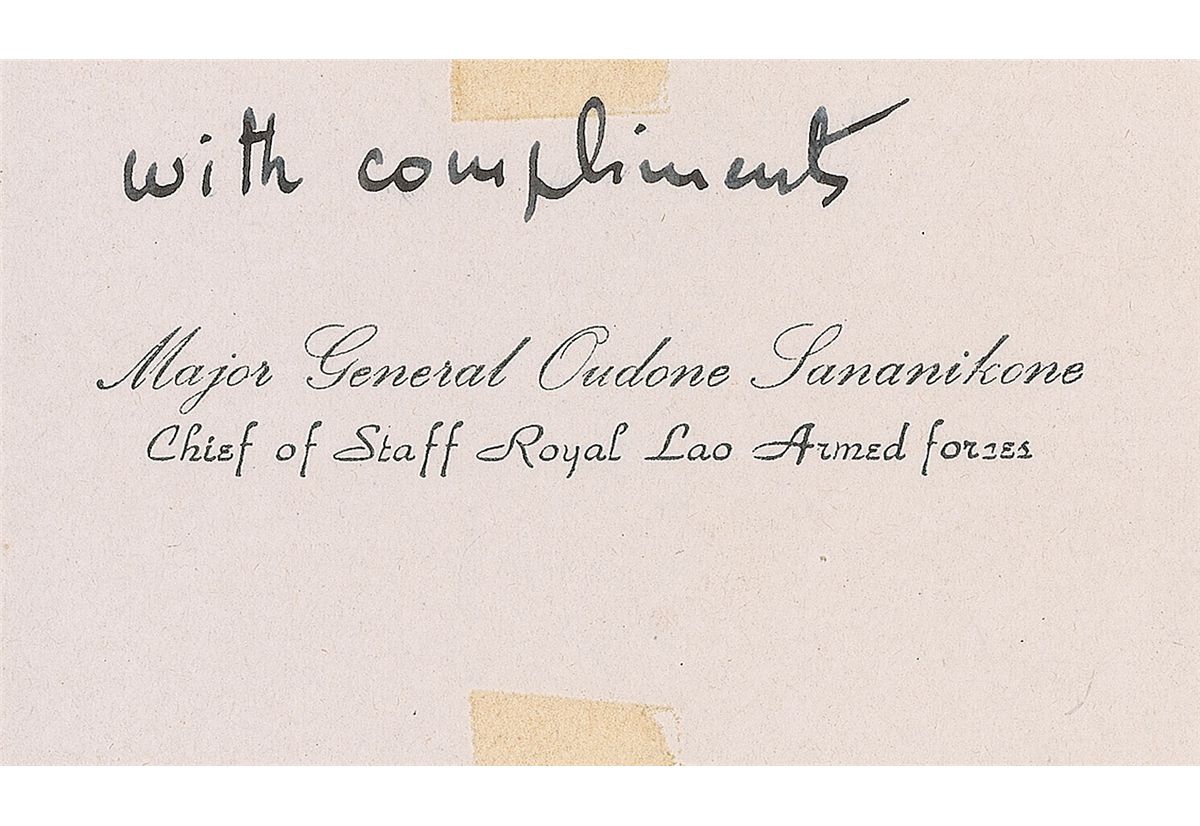 with compliments
Major General Oudone Sananikone
Chief of Staff Royal Lao Armed forces